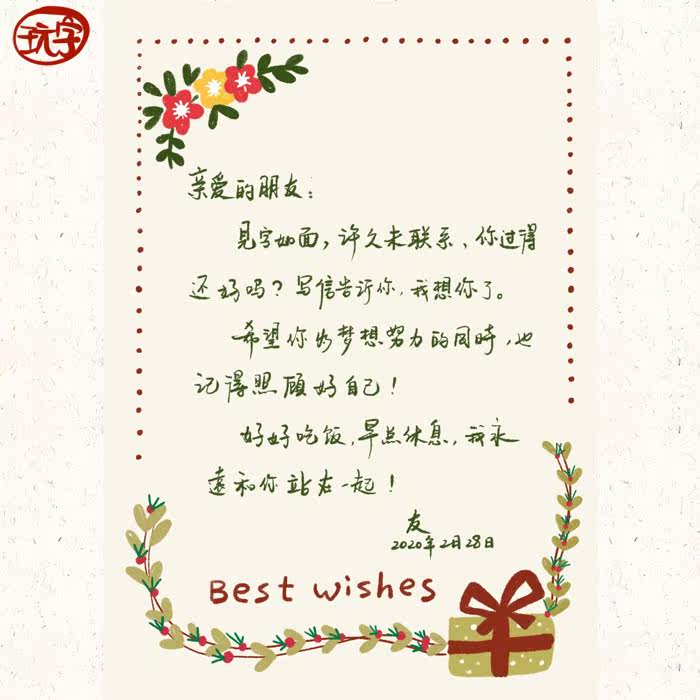 玩字
亲爱的朋友：
见字如面，许久未联系、你过得
还好吗？写信告诉你，我想你了。
希望你为梦想努力的同时，也
记得照顾好自己！
好好吃饭，早点休息，我永
远和你站在一起！
友
2020年2月28日
Best wishes